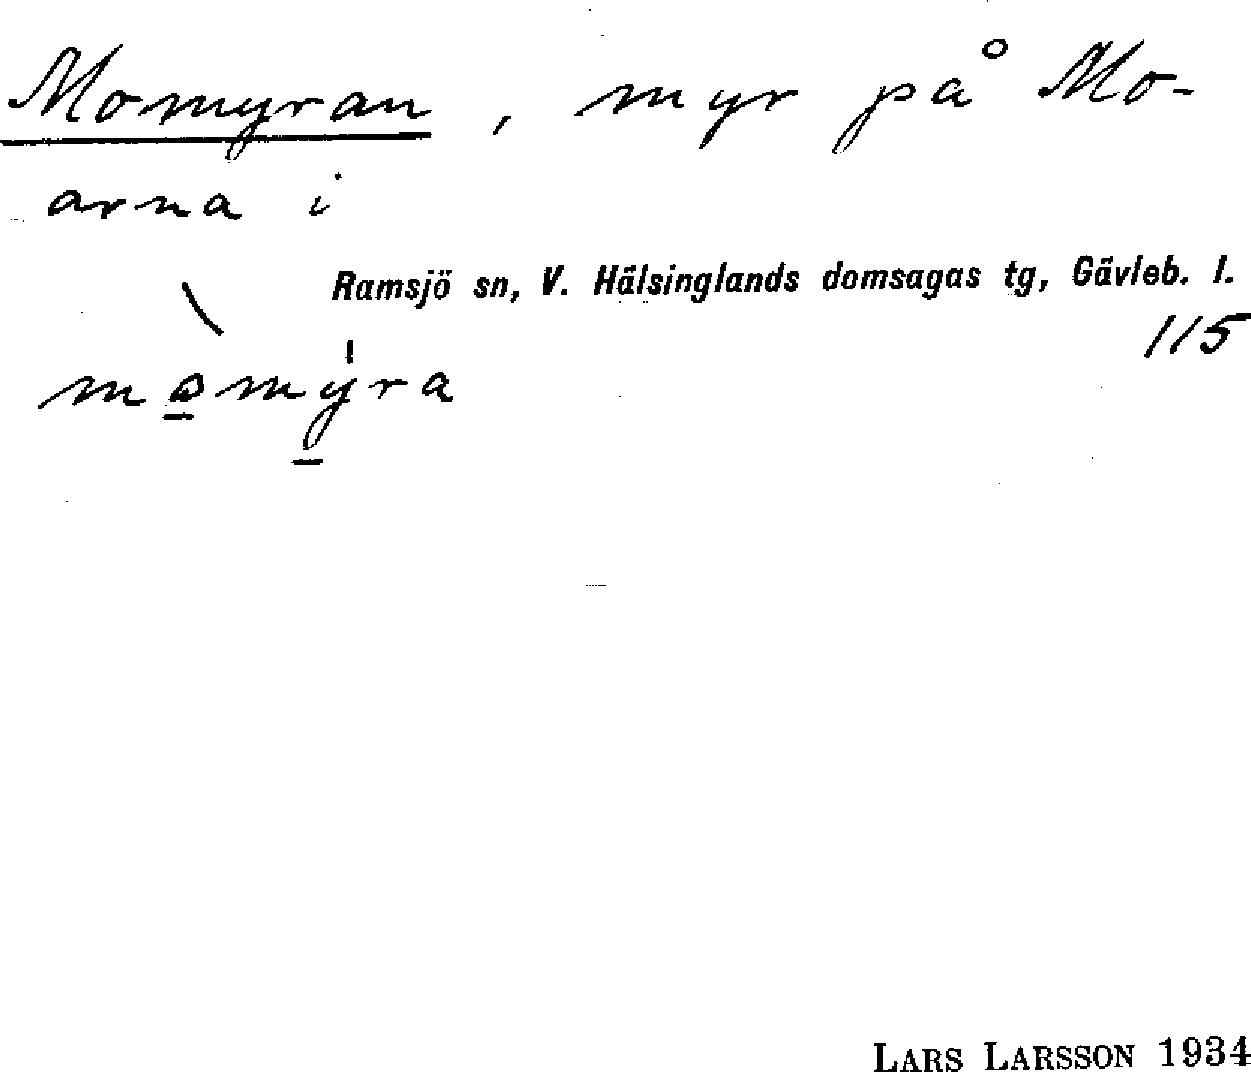 Momyran, myr på Mo-
arna i
Ramsjö sn, V. Hälsinglands domsagas tg, Gävleb. l.
115
momyra
LARS LARSSON 1934